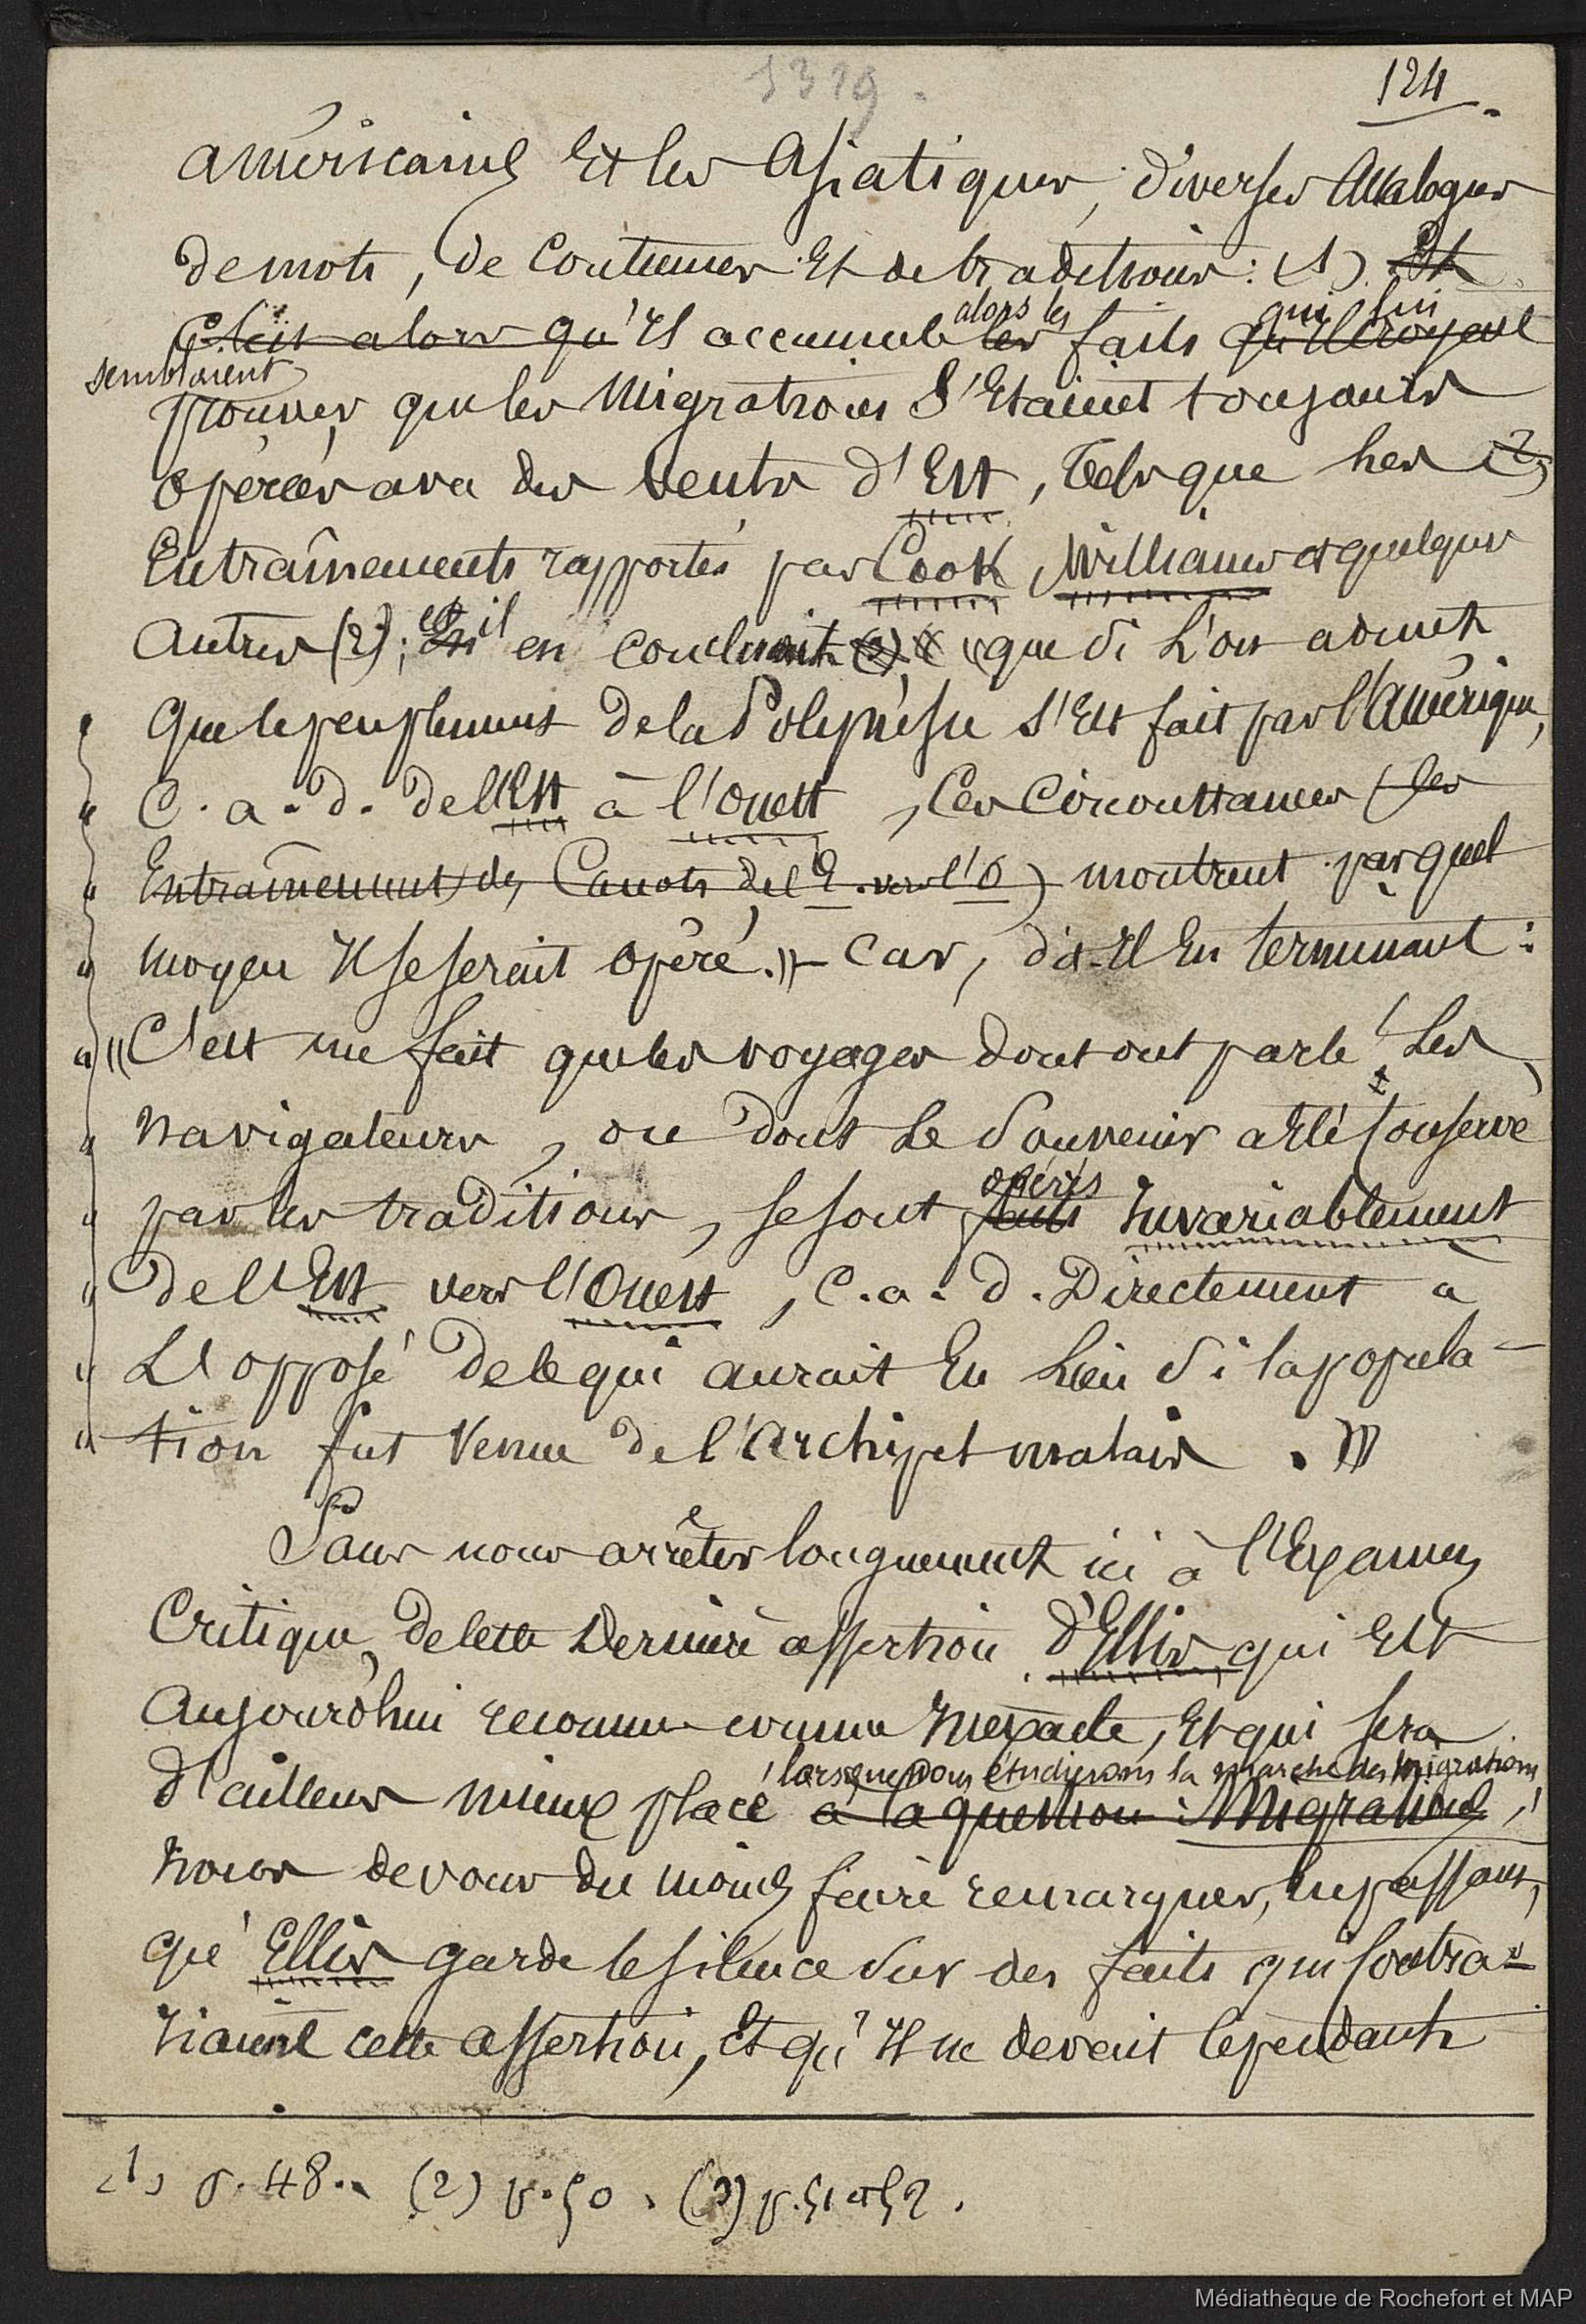 1319.
124.
américains et les Asiatiques, diverses analogues
de mots, de coutumes et de traditions : (1). Et
C'était alors qu'il accumule les alors les faits qu'il croyait qui lui
semblaient
prouver que les migrations s'étaient toujours
opérées avec des vents d'Est, tels que les (2)
Entraînements rapportés par Cook, Williams et quelques
autres (2); et il en concluait (2) « que si l'on admet
que le peuplement de la Polynésie s'est fait par l'Amérique,
c. a. d. de l'Est à l'ouest, ces circonstances (les
Entraînements des Canots de l'E. vers l'O) montrent par quel
moyen il se serait opéré. » – Car, dit-il en terminant :
« C'est un fait que les voyages dont ont parlé les
navigateurs, ou dont le souvenir a été conservé
par les traditions, se sont faits opérés invariablement
de l'Est vers l'Ouest, c. a. d. Directement à
L'opposé de ce qui aurait eu lieu si la popula-
tion fut venue de l'archipel malais. »
Sans nous arrêter longuement ici à l'Examen
Critique de cette dernière assertion d'Ellis qui est
aujourd'hui reconnue comme inexacte, et qui sera
d'ailleurs mieux placé à la question : Migrations, lorsque nous étudierons la marche des migrations,
nous devons du moins faire remarquer, en passant,
que Ellis garde le silence sur des faits qui contra-
riaient cette assertion, et qu'il ne devait cependant
(1) p. 48. (2) p. 50. (3) p. 51 et 52.
Médiathèque de Rochefort et MAP